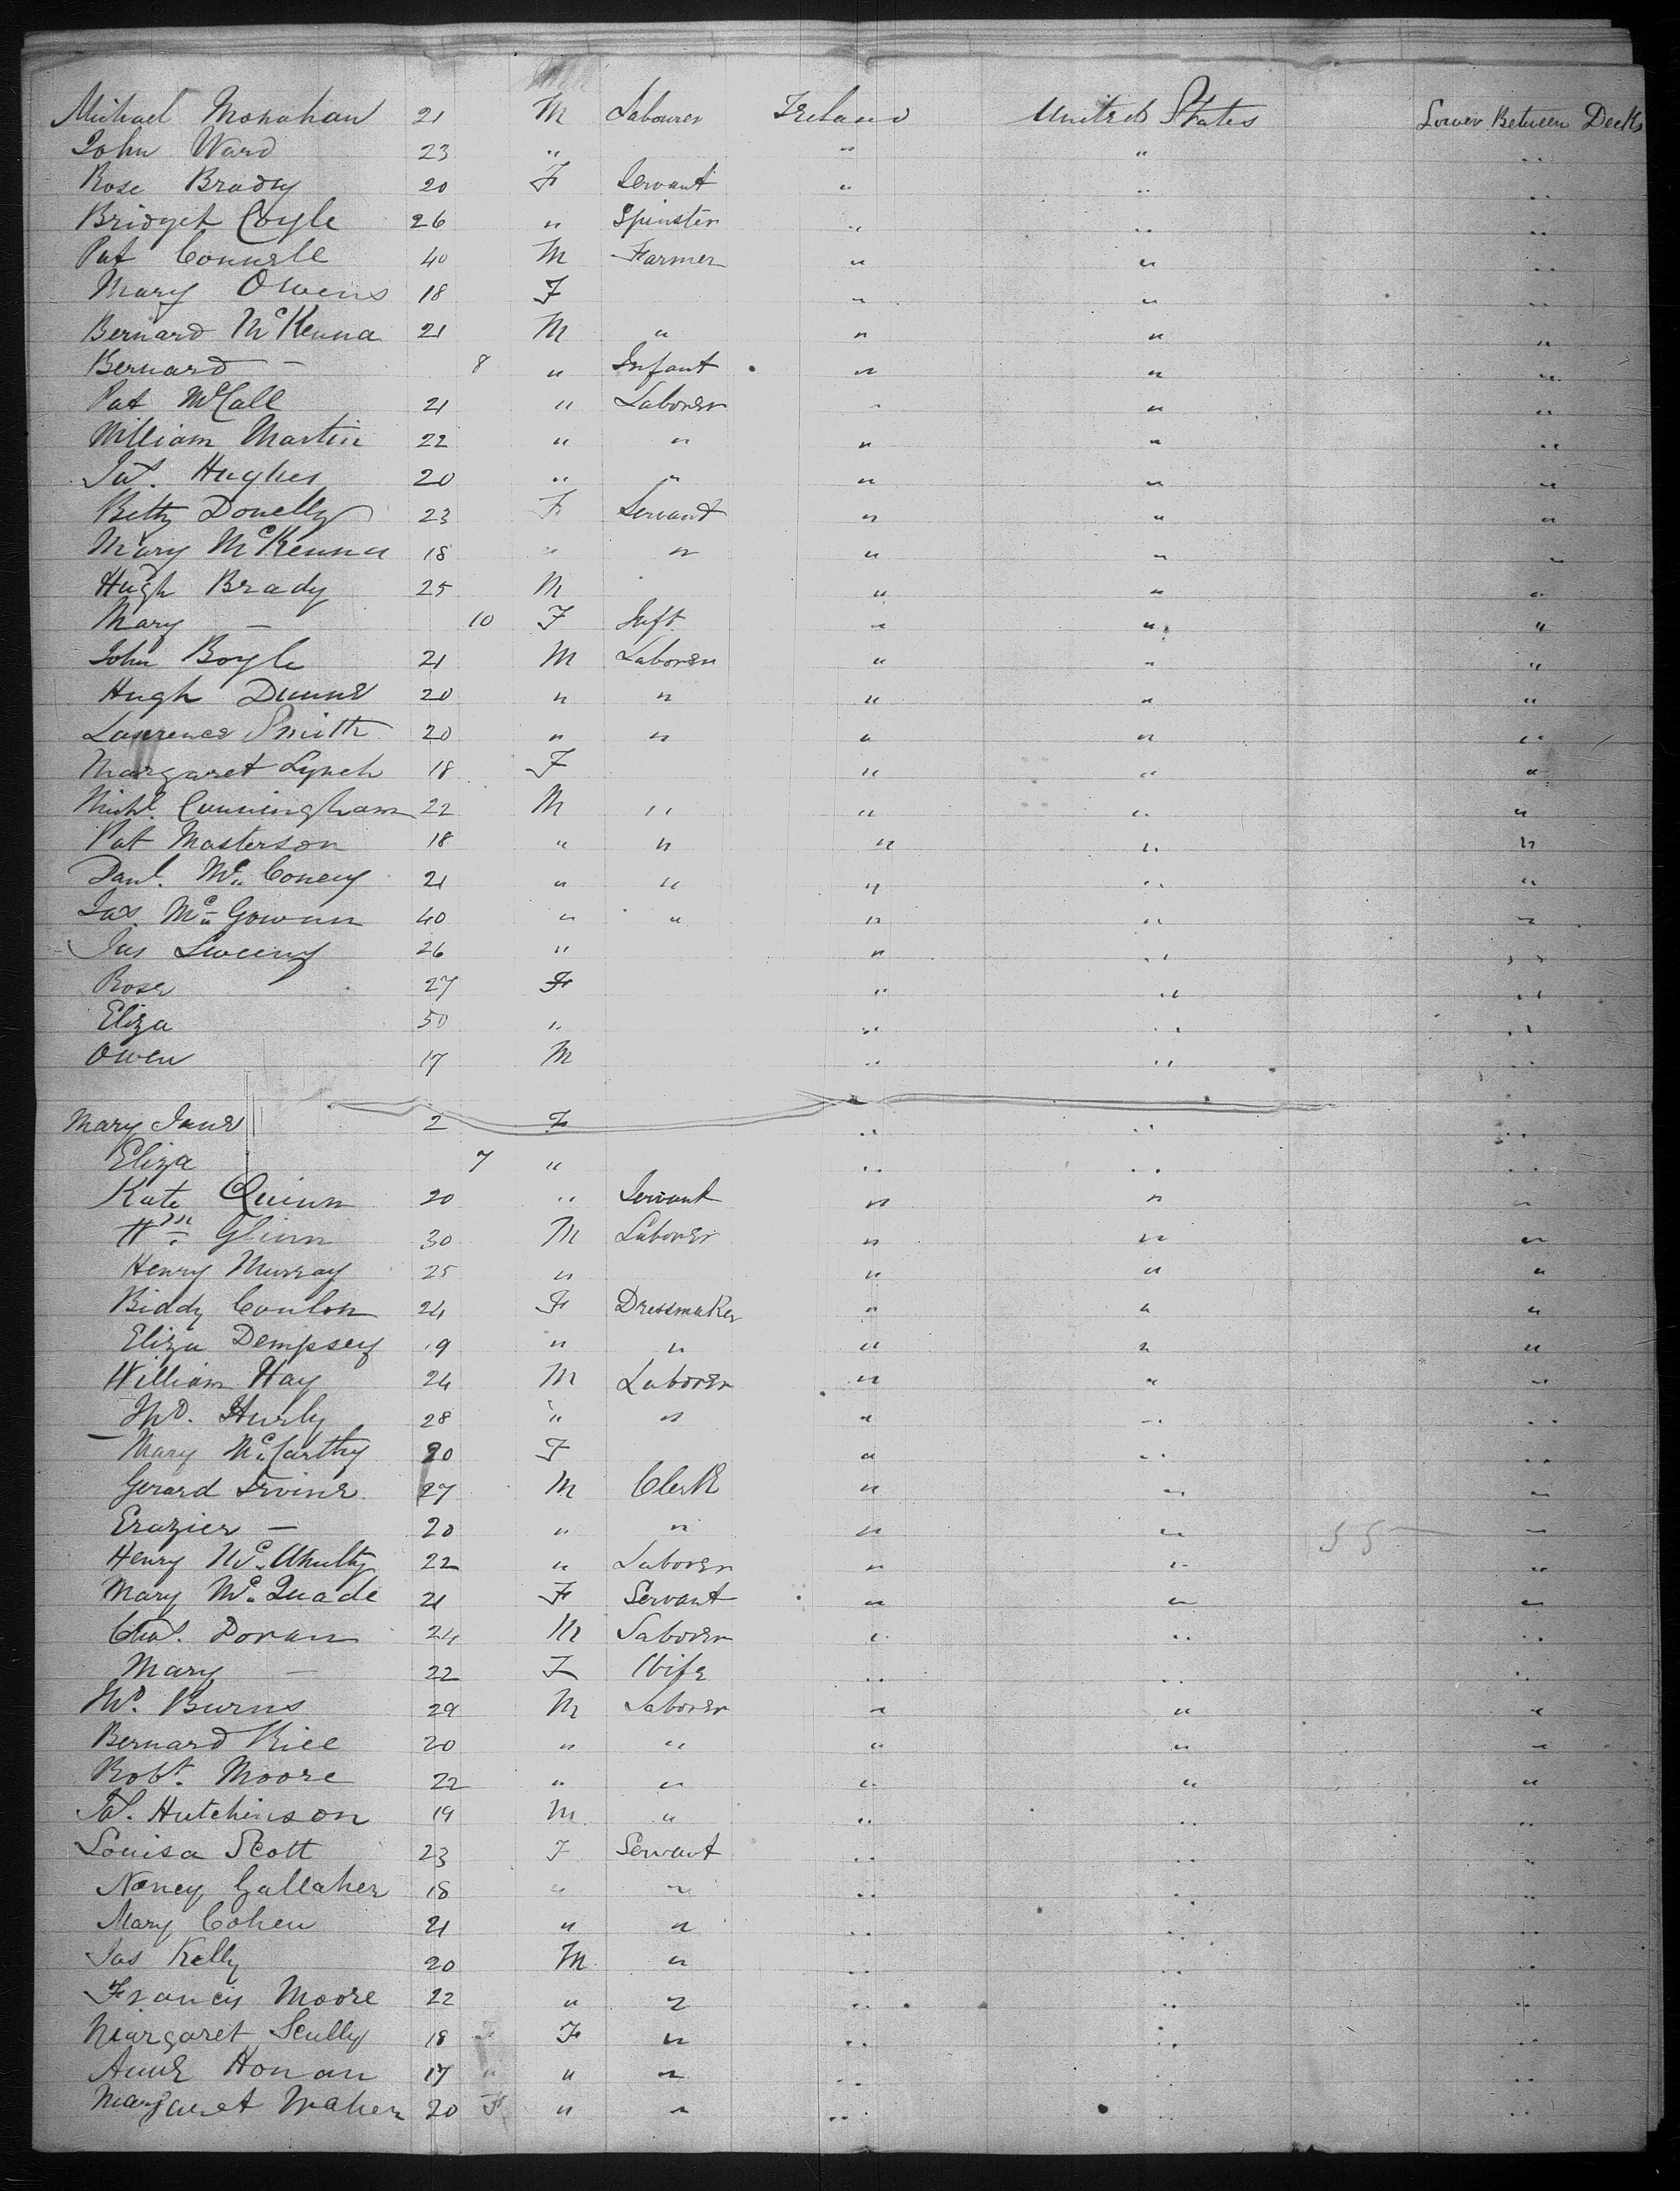 Michael Monahan 21 M Labourer Ireland United States Lower Between Decks
John Ward 23 " " " "
Rose Brady 20 F Servant " " "
Bridget Coyle 26 " Spinster " " "
Pat Connelle 40 M Farmer " " "
Mary Owens 18 F " " "
Bernard McKenna 21 M " " " "
Bernard — 8 " Infant " " "
Pat McCall 21 " Laborer " " "
William Martin 22 " " " " "
Jas. Hughes 20 " " " " "
Betty Donelly 23 F Servant " " "
Mary McKenna 18 " " " " "
Hugh Brady 25 M " " "
Mary — 10 F Inft. " " "
John Boyle 21 M Laborer " " "
Hugh Dunne 20 " " " " "
Lawrence Smith 20 " " " " "
Margaret Lynch 18 F " " "
Michl. Cunningham 22 M " " " "
Pat Masterson 18 " " " " "
Danl. Mc Coney 21 " " " " "
Jas Mc Gowan 40 " " " " "
Jas Sweeny 26 " " " "
Rose 27 F " " "
Eliza 50 " " " "
Owen 17 M " " "
Mary Jane 2 F " " "
Eliza 7 " " " "
Kate Quinn 20 " Servant " " "
Wm. Glinn 30 M Laborer " " "
Henry Murray 25 " " " "
Biddy Conlon 24 F Dressmaker " " "
Eliza Dempsey 19 " " " " "
William Hay 24 M Laborer " " "
Jno. Hurly 28 " " " " "
Mary McCarthy 20 F " " "
Gerard Irvine 27 M Clerk " " "
Frazier — 20 " " " " 55 "
Henry Mc 22 " Laborer " " "
Mary Mc Quade 21 F Servant " " "
Chas. Doran 24 M Laborer " " "
Mary — 22 F Wife " " "
Jno. Burns 29 M Laborer " " "
Bernard Rice 20 " " " " "
Robt. Moore 22 " " " " "
Jas. Hutchinson 19 M " " " "
Louisa Scott 23 F Servant " " "
Nancy Gallaher 18 " " " " "
Mary Cohen 21 " " " " "
Jas Kelly 20 M " " " "
Francis Moore 22 " " " " "
Margaret Scully 18 F F " " " "
Anne Honan 17 " " " " " "
Margaret Maher 20 F " " " " "